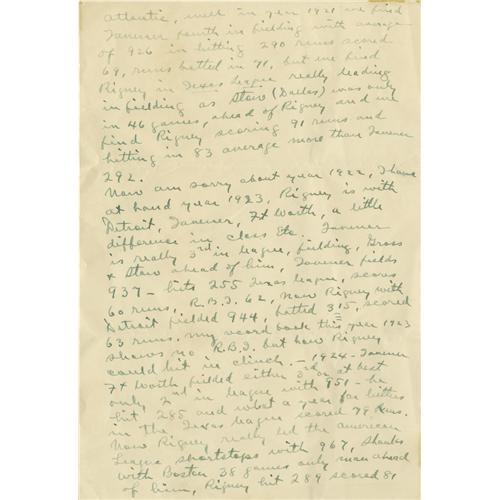 atlantic, well in year 1921 we find
Tavener fourth in fielding with average
of 926 in hitting 290 runs scored
69, runs batted in 71, but we find
Rigney in Texas League really leading
in fielding as Stow (Dallas) was only
in 46 games, ahead of Rigney and we
find Rigney scoring 91 runs and
hitting in 83 average more than Tavener
292.
Now am sorry about year 1922, I have
at hand year 1923, Rigney is with
Detroit, Tavener, Ft Worth, a little
difference in class Etc. Tavener
is really 3rd in league, fielding, Gross
& Stow ahead of him, Tavener fields
937 - hits 255 Texas league, scores
60 runs, R.B.I. 62, Now Rigney with
Detroit fielded 944, batted 315, scored
63 runs. my record book this year 1923
shows no R.B.I. but how Rigney
could hit in clinch. - 1924 - Tavener
Ft Worth fielded either 3rd or at best
only 2nd in league with 951 - he
hit 285 and what a year for hitters
in the Texas league scored 79 Runs.
Now Rigney really led the american
League shortstops with 967, Shanks
with Boston 38 games only man ahead
of him, Rigney hit 289 scored 81